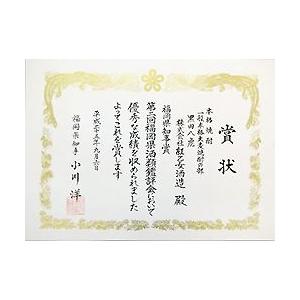 賞状
本格焼酎
一般本格麦焼酎の部
黒田八虎
株式会社紅乙女酒造 殿
福岡県知事賞
第三回福岡県酒類鑑評会において
優秀な成績を収められました
よってこれを賞します
平成二十五年六月六日
福岡県知事 小川 洋